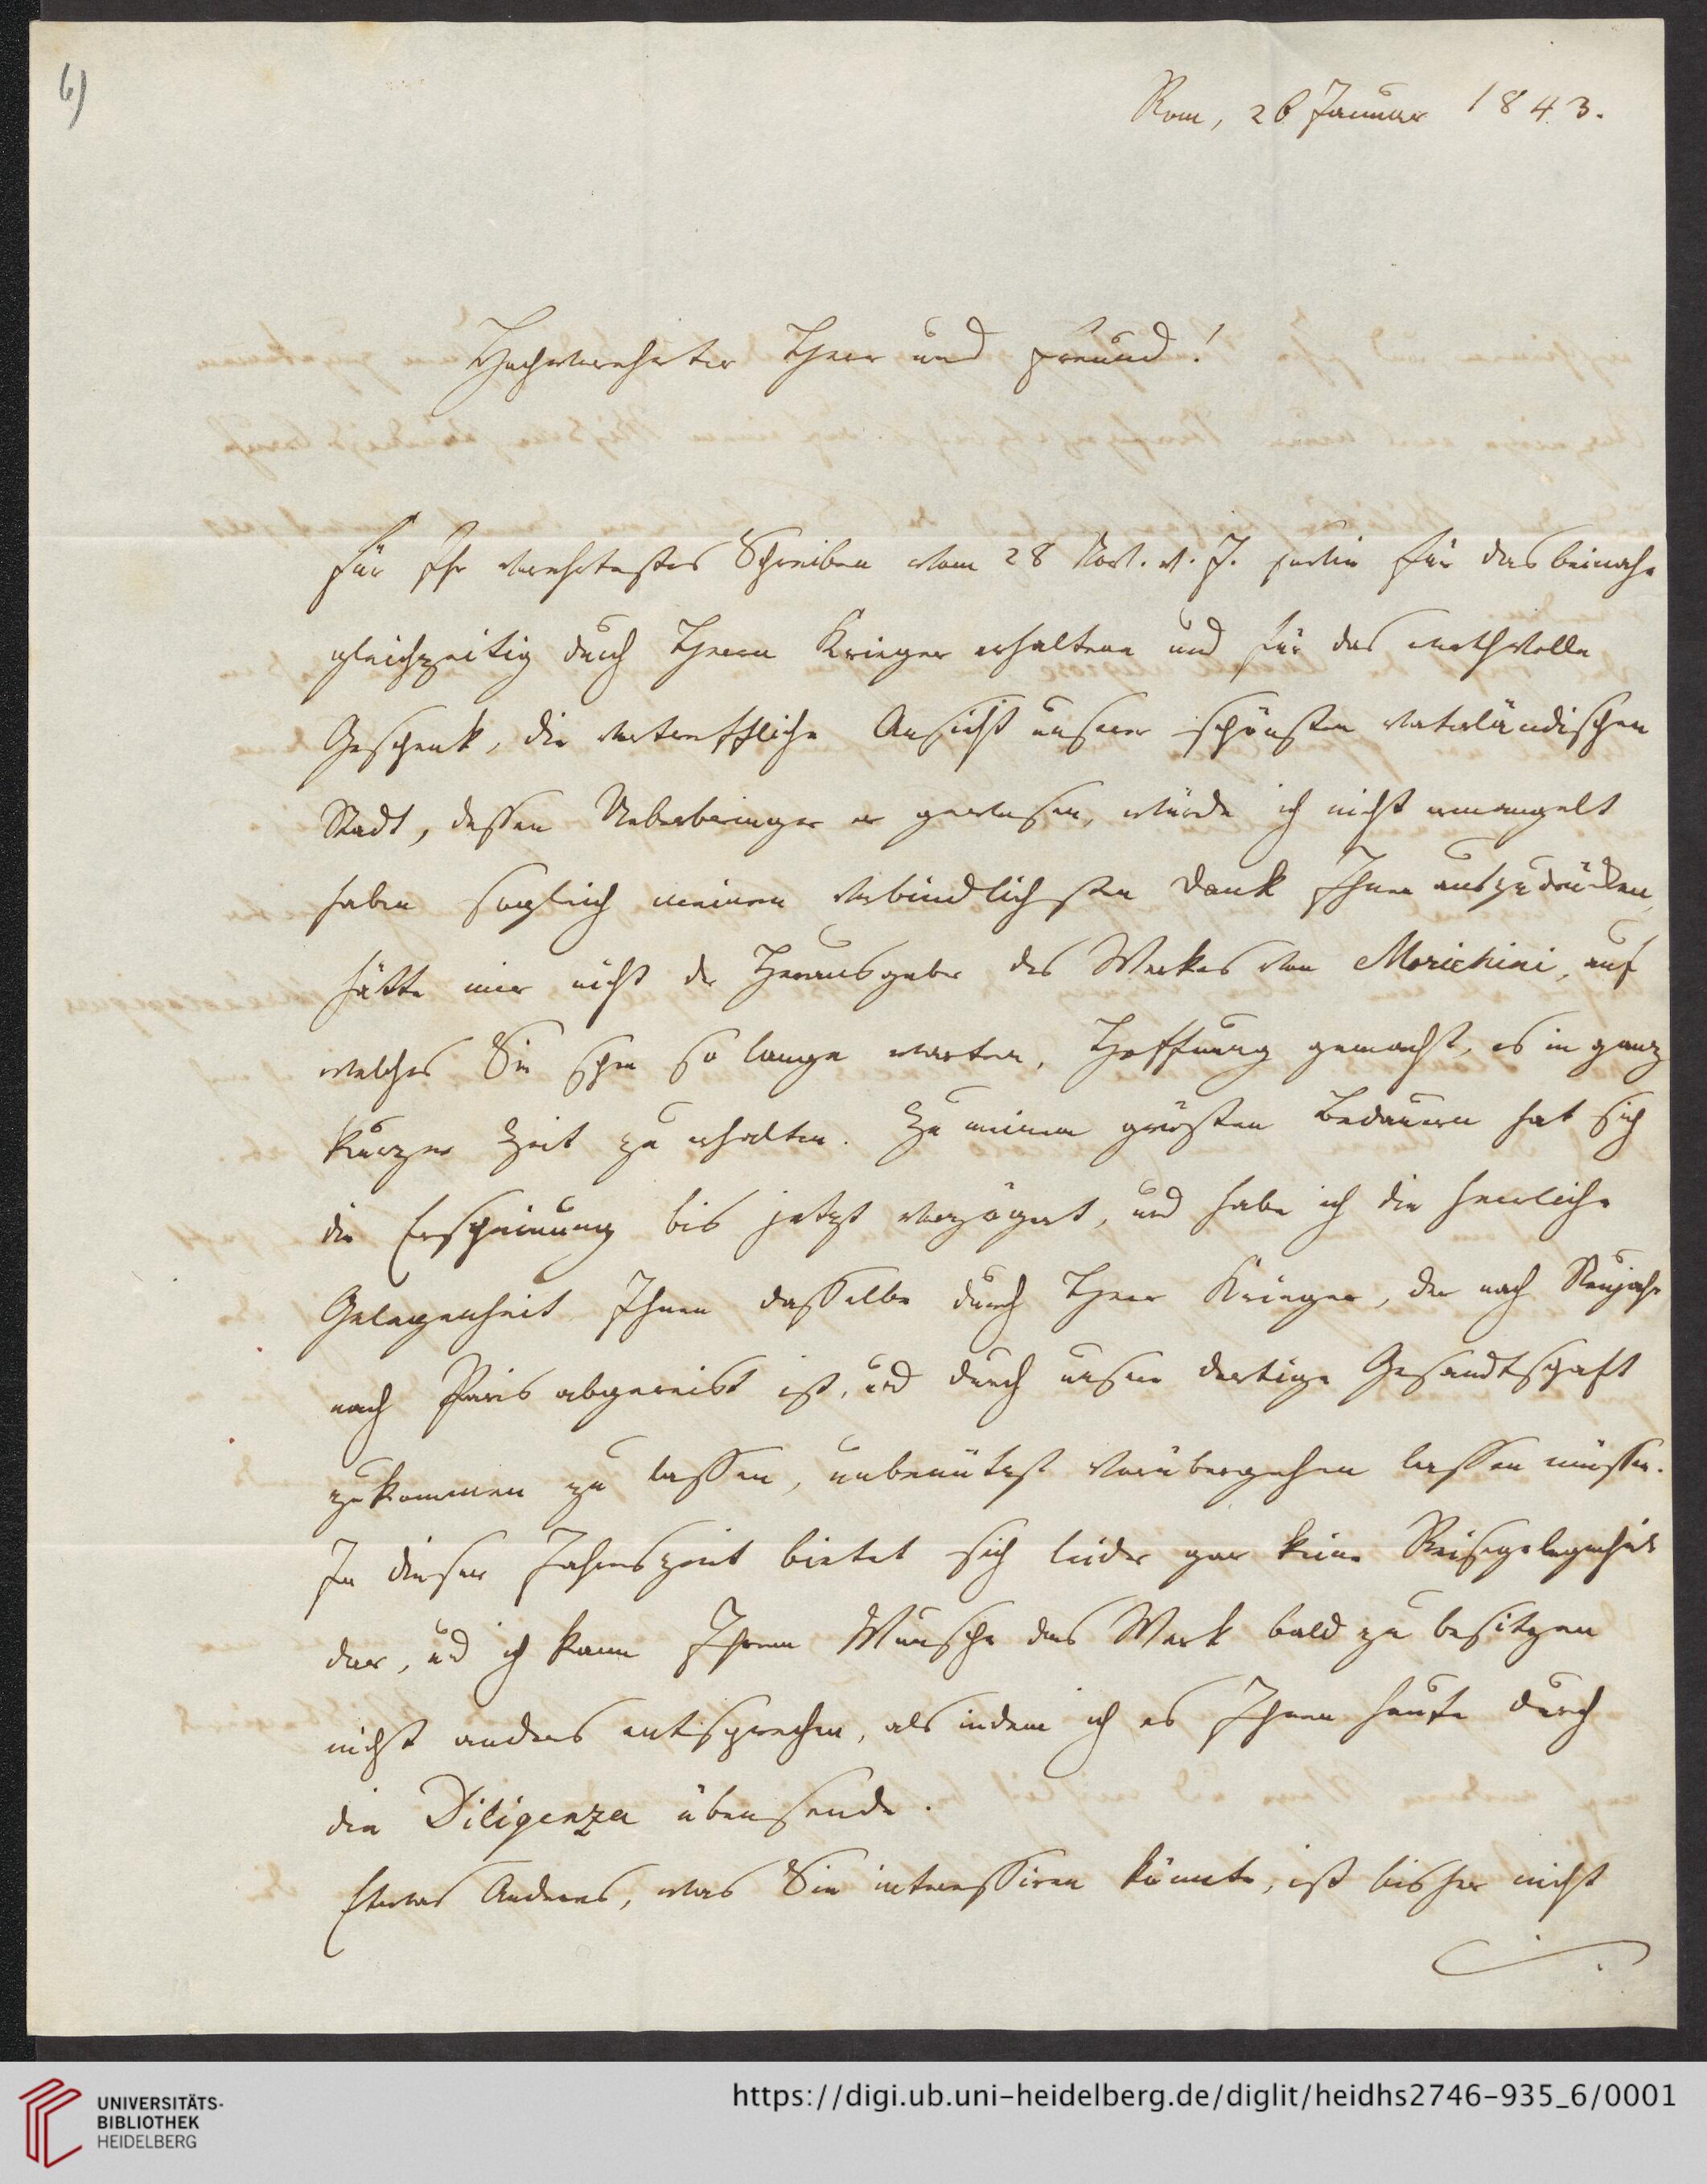 6)
Rom, 26 Januar 1843.
Hochverehrter Herr und Freund!
Für Ihr verehrtestes Schreiben vom 28 Nov. v. J. sowie für das beinahe
gleichzeitig durch Herrn Krieger erhaltene und für das werthvolle
Geschenk, die vortreffliche Ansicht unserer schönsten vaterländischen
Stadt, dessen Ueberbringer er gewesen, würde ich nicht ermangelt
haben sogleich meinen verbindlichsten Dank Ihnen auszudrücken,
hätte mir nicht der Herausgeber des Werkes von Morichini, auf
welches Sie schon so lange warten, Hoffnung gemacht, es in ganz
kurzer Zeit zu erhalten. Zu meinem grösten Bedauern hat sich
die Erscheinung bis jetzt verzögert, und habe ich die herrliche
Gelegenheit Ihnen dasselbe durch Herr Krieger, der nach Neujahr
nach Paris abgereist ist, und durch unsere dortige Gesandtschaft
zukommen zu lassen, unbenützt vorübergehen lassen müssen.
In dieser Jahreszeit bietet sich leider gar keine Reisegelegenheit
dar, und ich kann Ihrem Wunsche das Werk bald zu besitzen
nicht anders entsprechen, als indem ich es Ihnen heute durch
die Diligenza übersende.
Etwas Anderes, was Sie interessiren könnte, ist bisher nicht
UNIVERSITÄTS-
BIBLIOTHEK
HEIDELBERG
https://digi.ub.uni-heidelberg.de/diglit/heidhs2746-935_6/0001